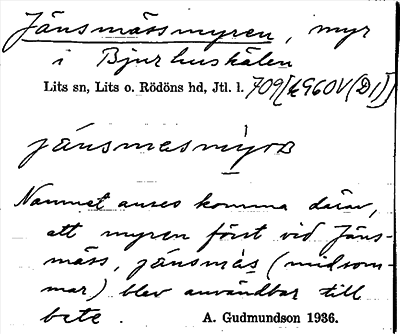 Jänsmässmyren, myr
i Bjurhuskälen
Lits sn, Lits o. Rödöns hd, Jtl. l. 709[k960V(D1)]
jánsmesmỳrɐ
Namnet anses komma därav,
att myren först vid Jäns-
mäss, jánsmäs (midsom-
mar) blev användbar till
bete.
A. Gudmundson 1936.